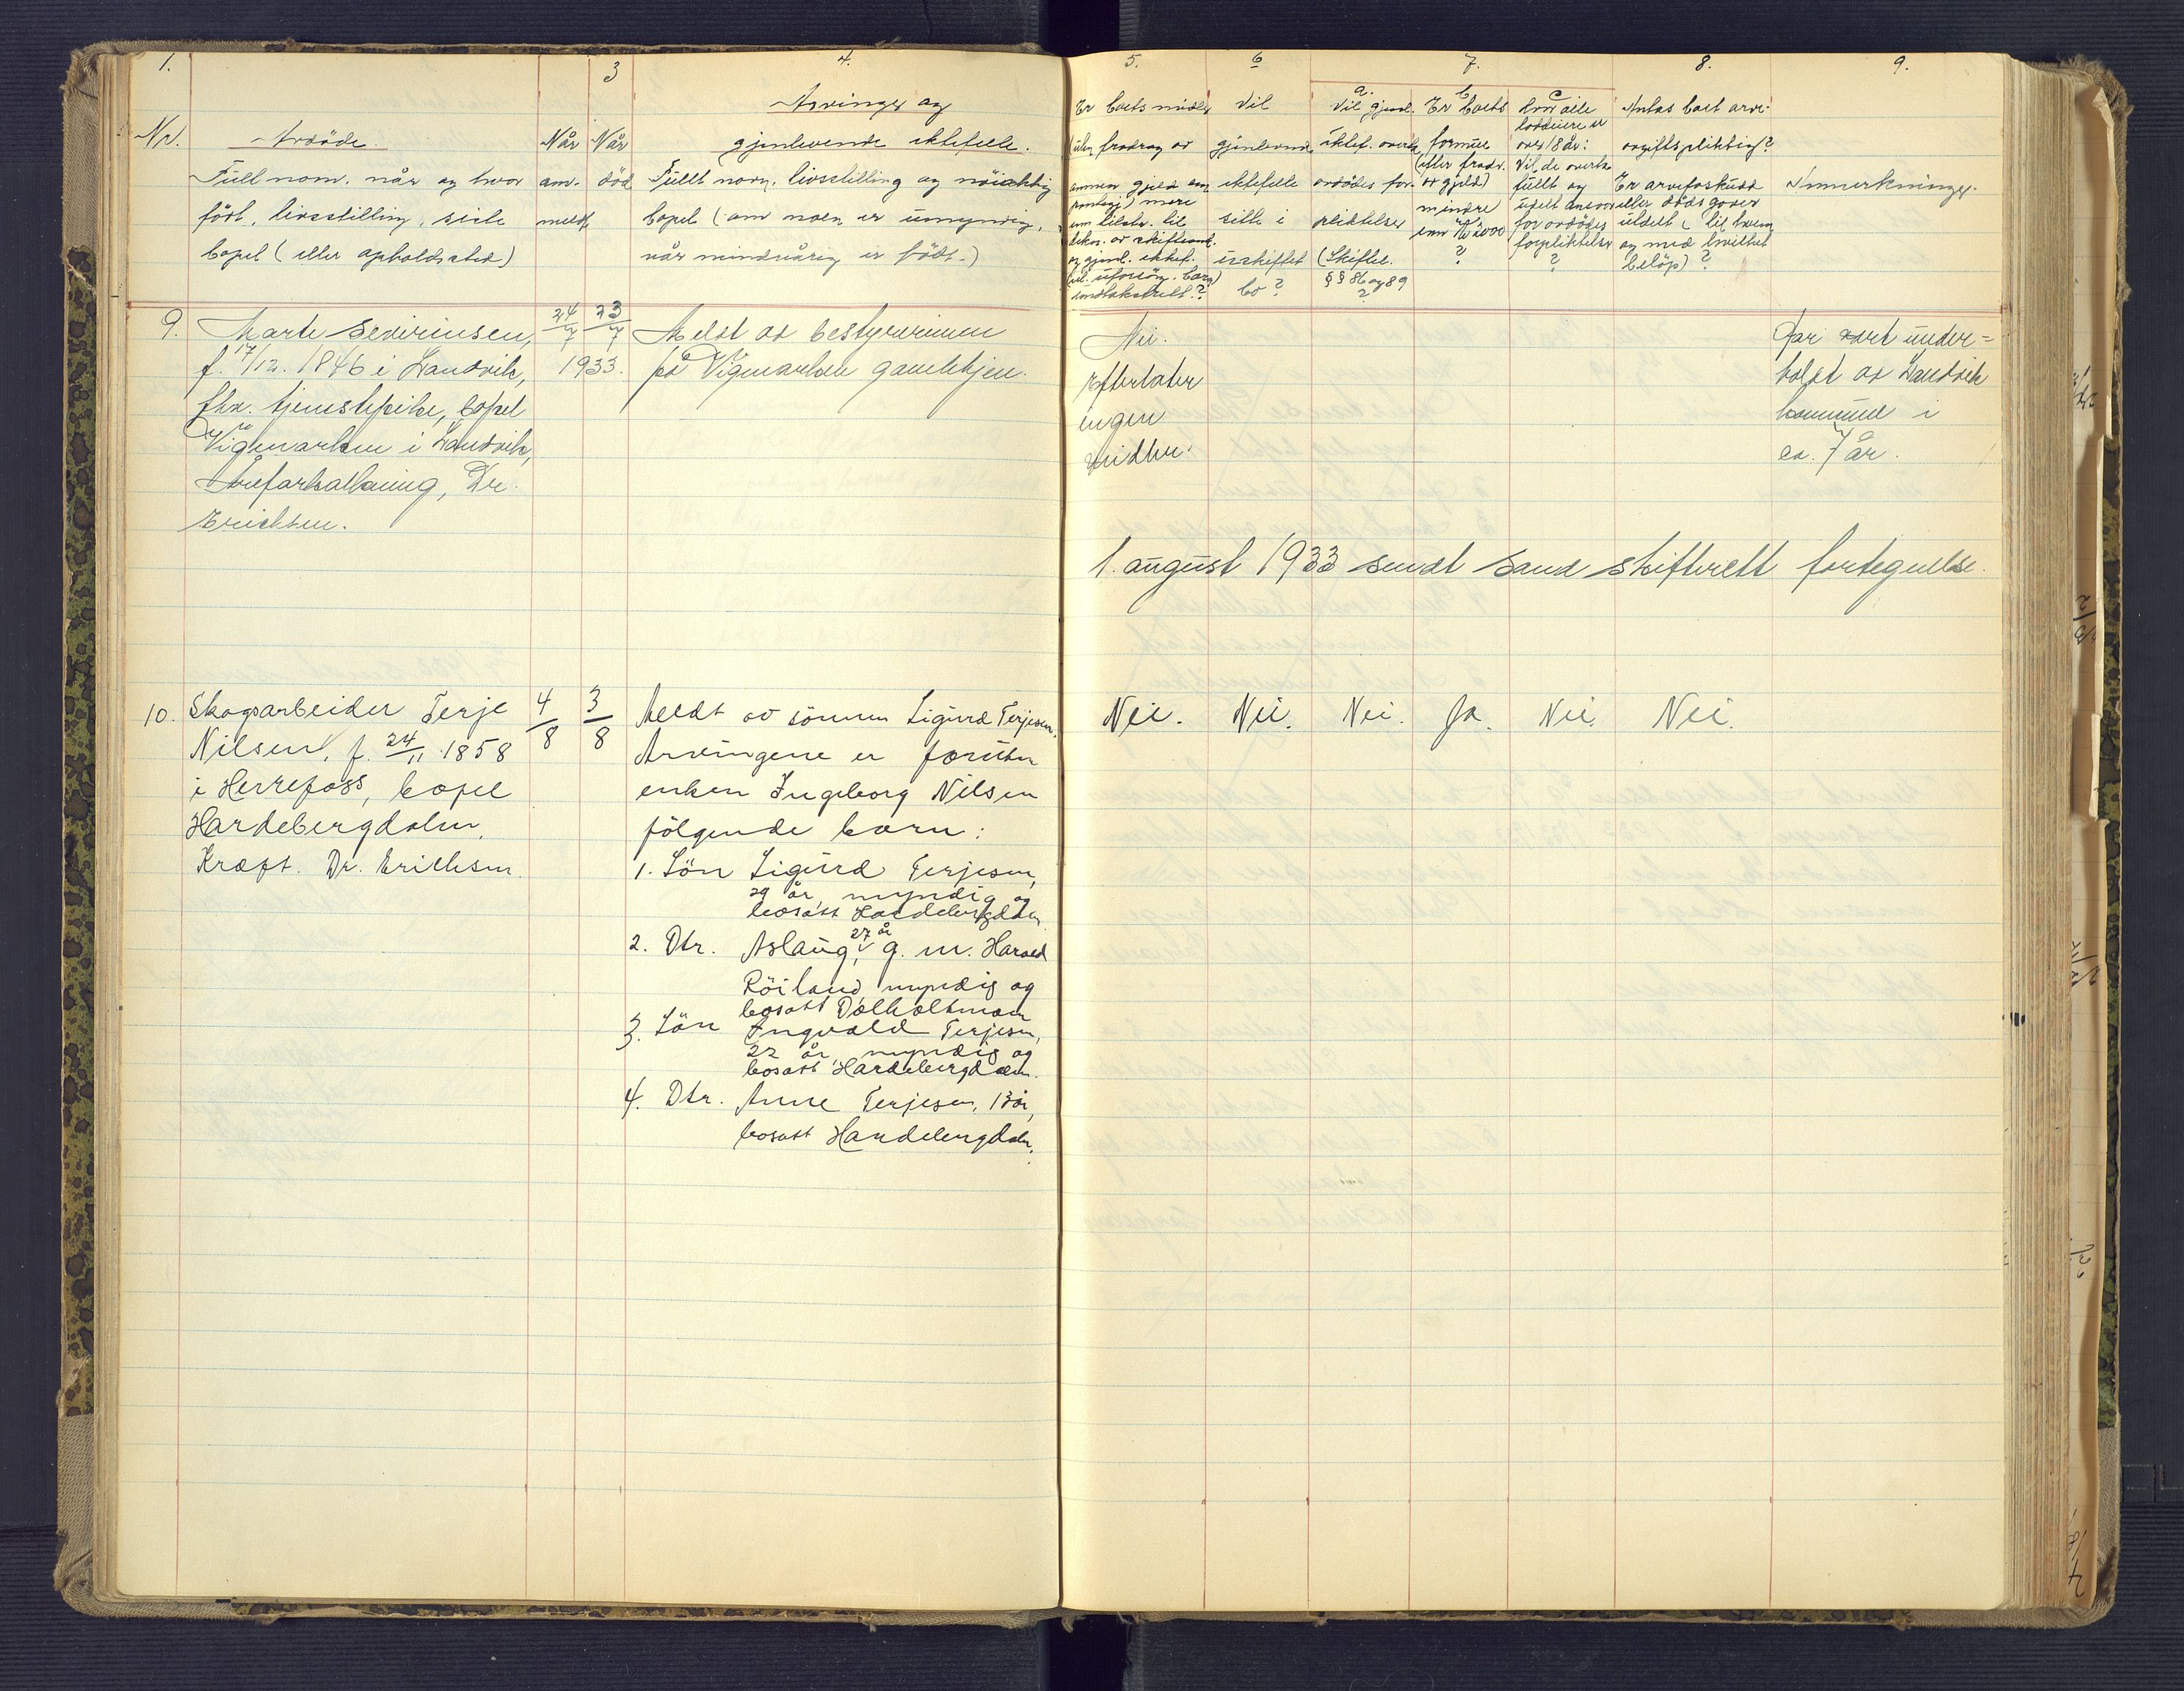 1.
3
4.
Nr.
Avdöde.
Når
Når
Arvinger og
gjenlevende ektefelle.
Fullt navn, når og hvor
an-
död
Fullt navn, livsstilling og nöiaktig
födt, livsstilling, siste
meldt
bopel (om noen er umyndig,
bopel (eller opholdssted)
når mindreårig er födt.)
9.
Marte Severinsen,
24/7
23/7
Meldt av bestyrerinnen
f. 17/12. 1846 i Landvik,
1933.
på Vigemarken gamlehjem.
fhv. tjenestepike, bopel
Vigemarken i Landvik,
Åreforkalkning, Dr.
Erichsen.
10.
Skogsarbeider Terje
4/8
3/8
Meldt av sönnen Sigurd Terjesen.
Nilsen, f. 24/11 1858
Arvingene er foruten
i Herrefoss, bopel
enken Ingeborg Nilsen
Hardebergdalen.
fölgende barn:
Kreft. Dr. Erichsen.
1. Sön Sigurd Terjesen,
29 år, myndig og
bosatt Hardebergdalen
2. Dtr. Aslaug, 27 år g. m. Harald
Röiland, myndig og
bosatt Dalholtmoen
3. Sön Ingvald Terjesen,
22 år, myndig og
bosatt Hardebergdalen.
4. Dtr. Anne Terjesen, 13 år,
bosatt Hardebergdalen.
5.
6
7.
8.
9.
Er boets midler
uten fradrag av
annen gjeld enn
pantegj.) mere
enn tilstr. til
dekn. av skifteomk.
og gjenl. ektef.
el. uforsörg. barn
Vil
gjenlevende
ektefelle
sitte i
uskiftet
bo?
a.
Vil gjenl.
ektef. overta
avdödes for-
pliktelser
(Skiftel.
§§ 86 og 89
?
b
Er boets
formue
(efter fradr.
av gjeld)
mindre
enn kr. 2000
?
c
Hvor alle
loddeiere er
over 18 år:
Vil de overta
fullt og
udelt ansvar
for avdödes
forpliktelser
?
Antas boet arve-
avgiftspliktig?
Er arveforskudd
eller dödsgaver
utdelt (til hvem
og med hvilket
belöp)?
Anmerkninger.
Nei.
Efterlater
ingen
midler.
Har vært under=
holdt av Landvik
kommune i
ca. 7 år.
1. august 1933 sendt Sand skifterett fortegnelse.
Nei.
Nei.
Nei.
Ja.
Nei.
Nei.